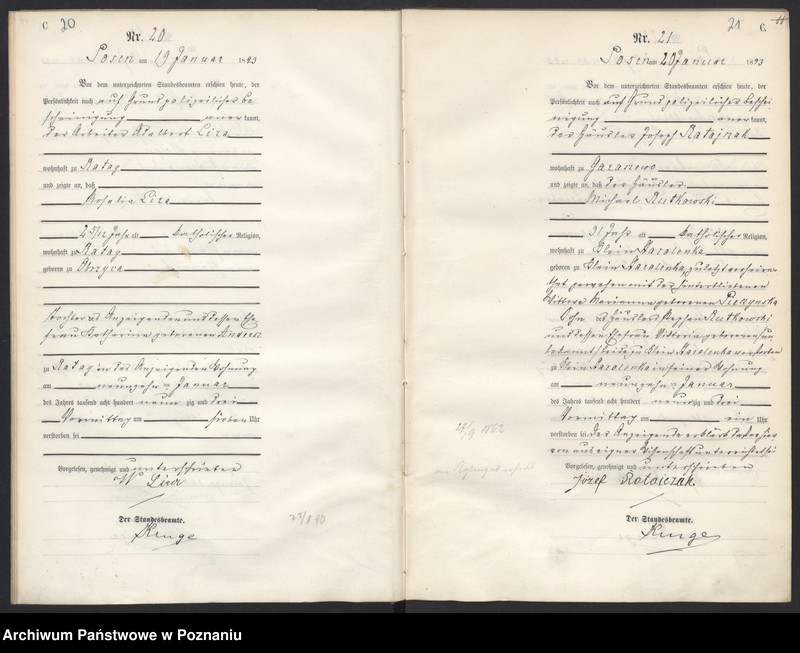 C 20
Nr. 20
Posen am 19 Januar 1893
Vor dem unterzeichneten Standesbeamten erschien heute, der
Persönlichkeit nach auf Grund polizeilicher Be
scheinigung aner kannt,
der Arbeiter Adalbert Lira
wohnhaft zu Rataj
und zeigte an, daß
Rosalia Lira
Jahr alt katholischer Religion,
wohnhaft zu Rataj
geboren zu
Tochter des Anzeigenden und dessen Ehe
frau Katharina geborenen
zu Rataj in des Anzeigenden Wohnung
am neunzehn ten Januar
des Jahres tausend acht hundert neun zig und drei
Vormittag um sieben Uhr
verstorben sei
Vorgelesen, genehmigt und unterschrieben
W Lira
Der Standesbeamte.
Kruge
21 C. 11
Nr. 21
Posen am 20 Januar 1893
Vor dem unterzeichneten Standesbeamten erschien heute, der
Persönlichkeit nach auf Grund polizeilicher Beschei
nigung aner kannt,
der Häusler Joseph Ratajczak
wohnhaft zu Garaszewo
und zeigte an, daß der Häusler
Michael Rutkowski
91 Jahr alt katholischer Religion,
wohnhaft zu Klein Starolenka
geboren zu Klein Starolenka zuletzt verheira
thet gewesen mit der hinterbliebenen
Wittwe Marianna geborenen
Sohn des Häuslers Stephan Rutkowski
und dessen Ehefrau Viktoria geborenen un
bekannt beide zu Klein Starolenka verstorben
zu Klein Starolenka in seiner Wohnung
am neunzehn ten Januar
des Jahres tausend acht hundert neun zig und drei
Vormittag um ein Uhr
verstorben sei. Der Anzeigende erklärte daß er hier
von aus eigner Wissenschaft unterrichtet sei
Vorgelesen, genehmigt und unterschrieben
Józef Ratajczak
Der Standesbeamte.
Kruge
Archiwum Państwowe w Poznaniu